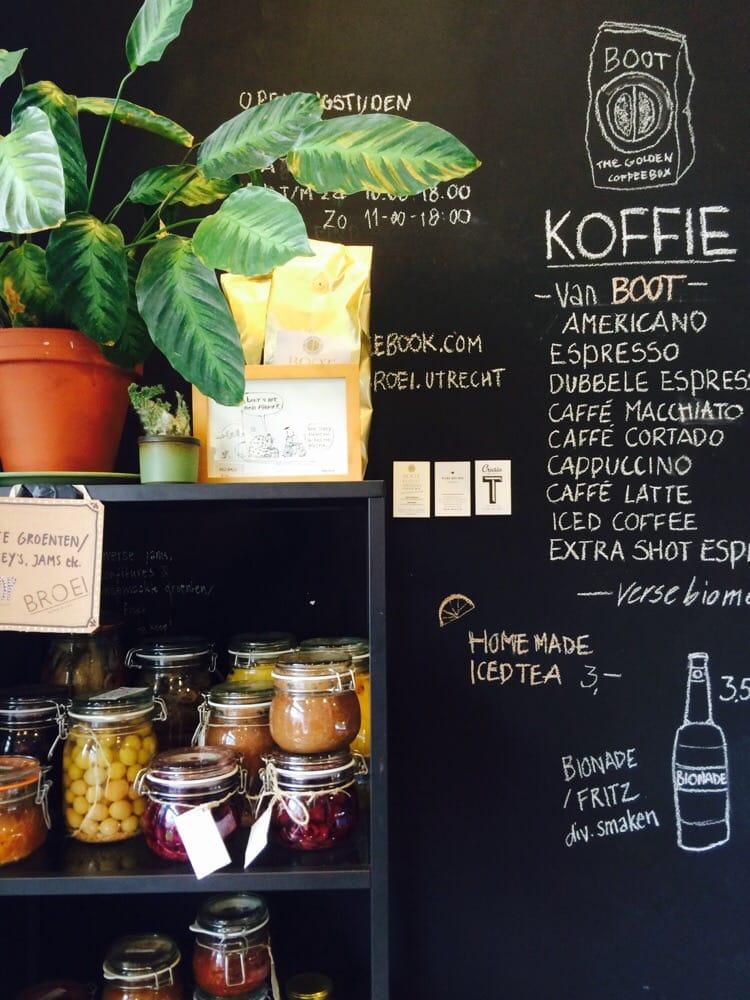 OPENINGSTIJDEN
T/M Za 10.00-18.00
Zo 11-00-18:00
EBOOK.COM
BROEI.UTRECHT
BOOT
THE GOLDEN
COFFEEBOX
KOFFIE
-Van BOOT-
AMERICANO
ESPRESSO
DUBBELE ESPRES
CAFFÉ MACCHIATO
CAFFÉ CORTADO
CAPPUCCINO
CAFFÉ LATTE
ICED COFFEE
EXTRA SHOT ESP
—verse biome
HOMEMADE
ICED TEA 3,-
3,5
BIONADE
/FRITZ
div. smaken
BIONADE
BOOT
T
TE GROENTEN/
EY'S, JAMS etc.
BROEI
verse jams,
groenten/